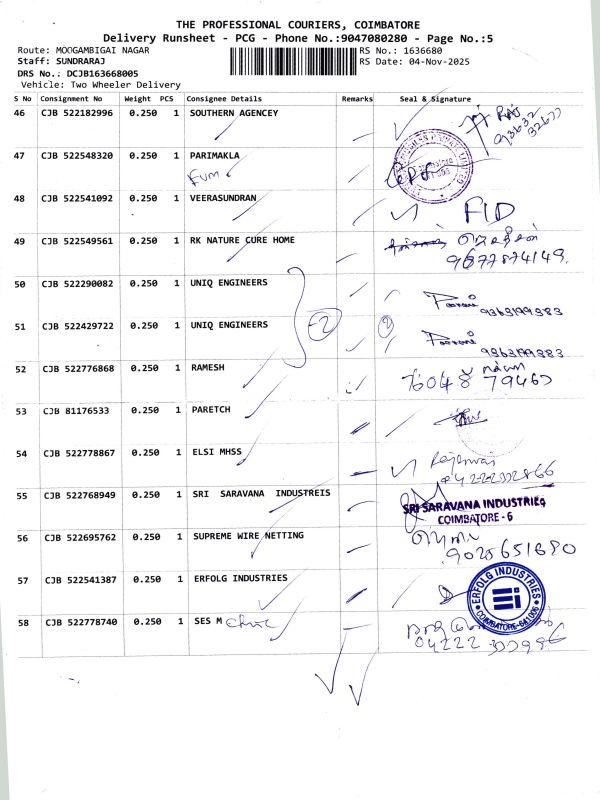 THE PROFESSIONAL COURIERS, COIMBATORE
Delivery Runsheet - PCG - Phone No.:9047080280 - Page No.:5
Route: MOOGAMBIGAI NAGAR RS No.: 1636680
Staff: SUNDRARAJ RS Date: 04-Nov-2025
DRS No.: DCJB163668005
Vehicle: Two Wheeler Delivery
S No Consignment No Weight PCS Consignee Details Remarks Seal & Signature
46 CJB 522182996 0.250 1 SOUTHERN AGENCEY
47 CJB 522548320 0.250 1 PARIMAKLA
48 CJB 522541092 0.250 1 VEERASUNDRAN FID
49 CJB 522549561 0.250 1 RK NATURE CURE HOME
9677874149
50 CJB 522290082 0.250 1 UNIQ ENGINEERS
9363199383
51 CJB 522429722 0.250 1 UNIQ ENGINEERS
9363199383
52 CJB 522776868 0.250 1 RAMESH
76048 79467
53 CJB 81176533 0.250 1 PARETCH
54 CJB 522778867 0.250 1 ELSI MHSS
55 CJB 522768949 0.250 1 SRI SARAVANA INDUSTREIS
SRI SARAVANA INDUSTRIES
COIMBATORE - 6
56 CJB 522695762 0.250 1 SUPREME WIRE NETTING
9025651680
57 CJB 522541387 0.250 1 ERFOLG INDUSTRIES
ERFOLG INDUSTRIES
COIMBATORE-641006
58 CJB 522778740 0.250 1 SES M